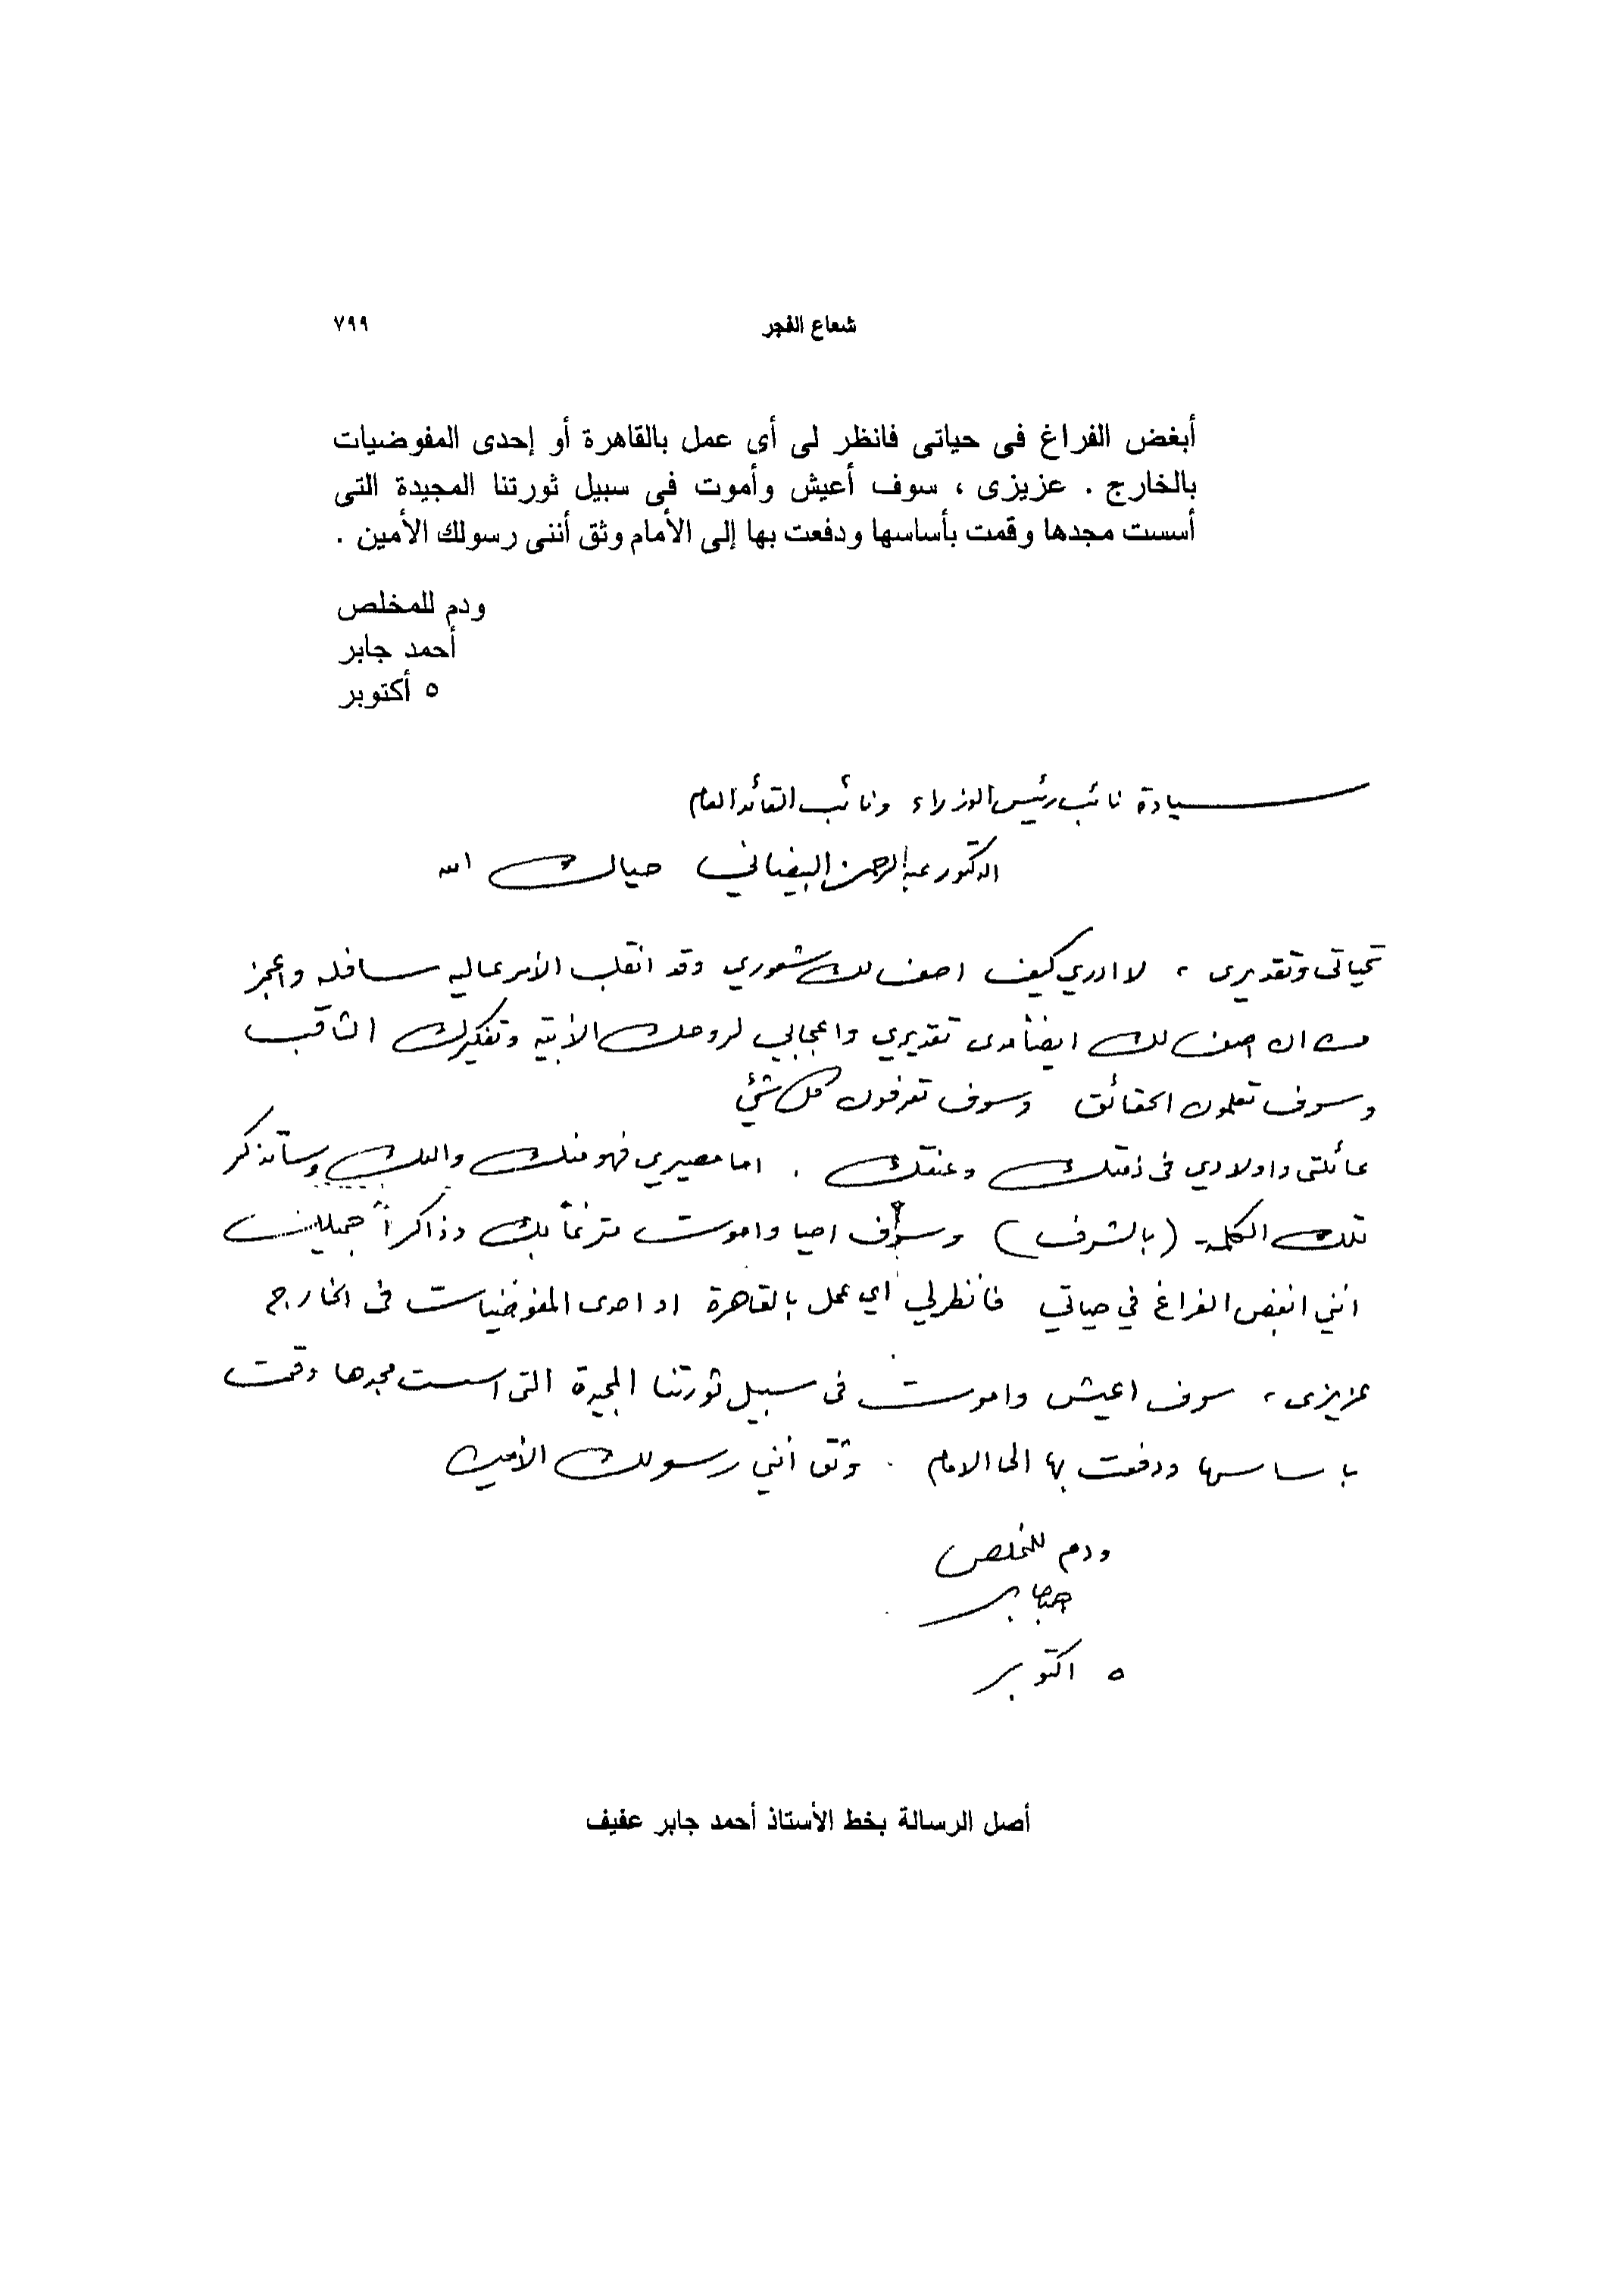 شعاع الفجر
٧٩٩
أبغض الفراغ فى حياتى فانظر لى أى عمل بالقاهرة أو إحدى المفوضيات
بالخارج . عزيزى ، سوف أعيش وأموت فى سبيل ثورتنا المجيدة التى
أسست مجدها وقمت بأساسها ودفعت بها إلى الأمام وثق أننى رسولك الأمين .
ودم للمخلص
أحمد جابر
٥ أكتوبر
سيادة نائب رئيس الوزراء ونائب القائد العام
الدكتور عبدالرحمن البيضاني حياك الله
تحياتى وتقديرى ، لا ادري كيف اصف لك شعوري وقد انقلب الأمر عاليه سافله واعجز
من ان اصف لك ايضاً مدى تقديري واعجابي لروحك الأبيّة وتفكيرك الثاقب
وسوف تعلمون الحقائق وسوف تعرفون كل شئ
عائلتى واولادي فى ذمتك وعنقك . اما مصيري فهو منك واليك وستذكر
تلك الكلمة (بالشرف) وسوف احيا واموت مترنماً بك وذاكراً جميلك
انني ابغض الفراغ في حياتي فانظر لي أي عمل بالقاهرة او احدى المفوضيات فى الخارج
عزيزى ، سوف اعيش واموت فى سبيل ثورتنا المجيدة التى اسست مجدها وقمت
باساسها ودفعت بها الى الامام . وثق أنني رسولك الأمين
ودم للمخلص
احمد جابر
٥ اكتوبر
أصل الرسالة بخط الأستاذ أحمد جابر عفيف